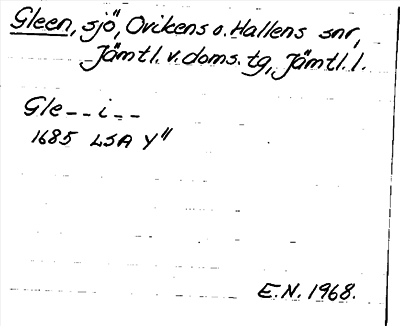 Gleen, sjö, Ovikens o. Hallens snr,
Jämtl. v. doms. tg, Jämtl. l.
Gle--i--
1685 LSA Y"
E.N. 1968.